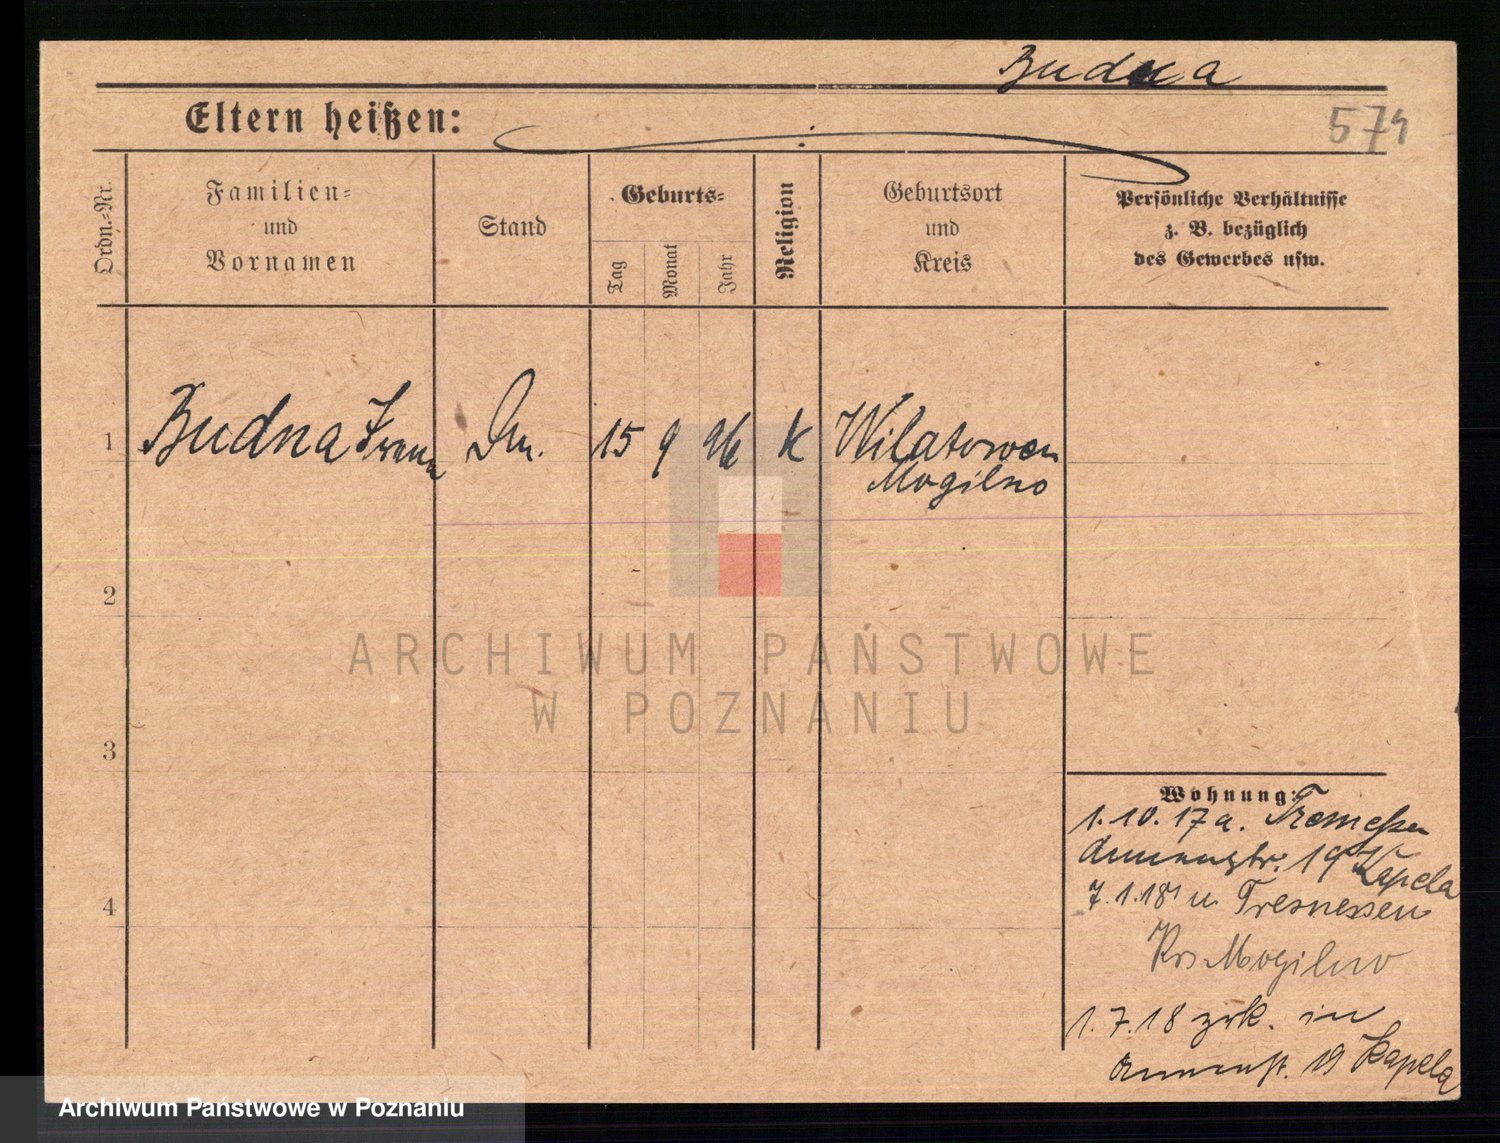 Budna
Eltern heißen:
574
Ordn.-Nr.
Familien-
und
Vornamen
Stand
Geburts-
Tag
Monat
Jahr
Religion
Geburtsort
und
Kreis
Persönliche Verhältnisse
z. B. bezüglich
des Gewerbes usw.
1
Budna Dm. 15 9 96 K Wilatowen
Mogilno
2
ARCHIWUM PAŃSTWOWE
W POZNANIU
3
4
Wohnung:
1. 10. 17 a. Tremessen
19 Kapela
7. 1. 18 n. Tremessen
Krs Mogilno
1. 7. 18 zrk. in
19 Kapela
Archiwum Państwowe w Poznaniu